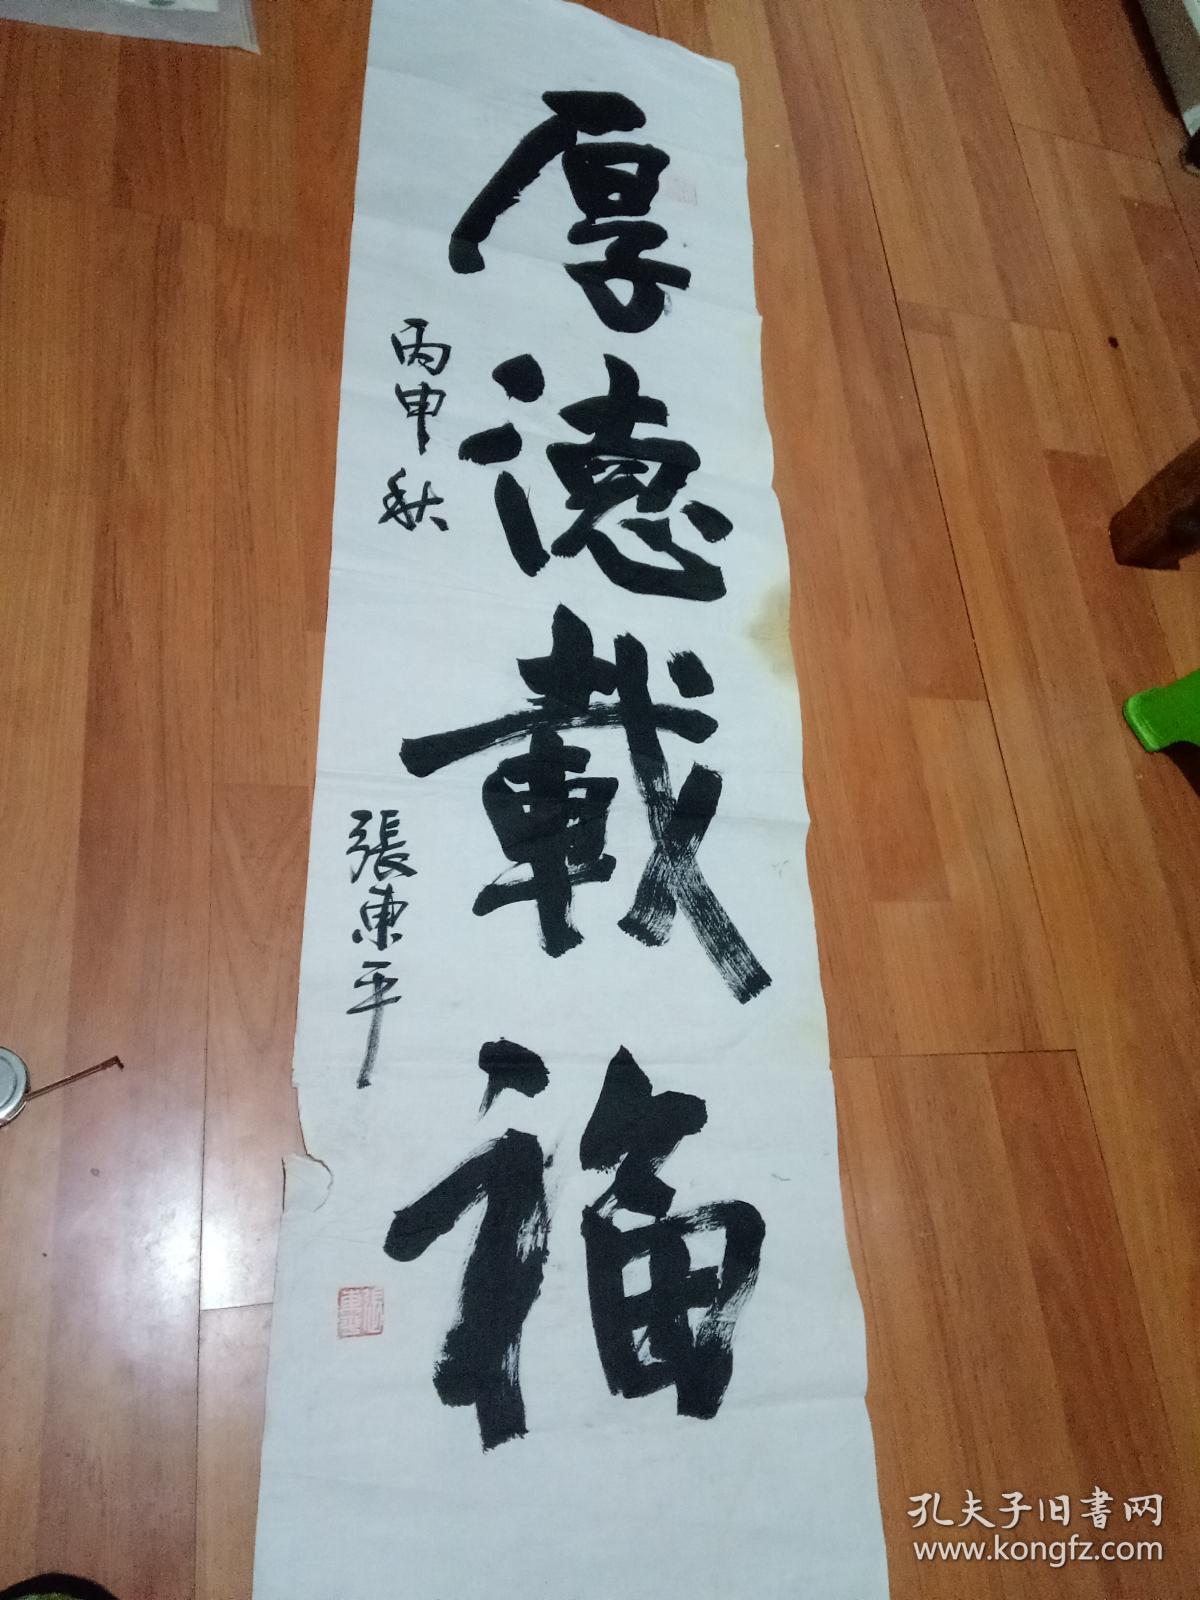 厚德載福
丙申秋
張東平
張東平
孔夫子旧書网
www.kongfz.com